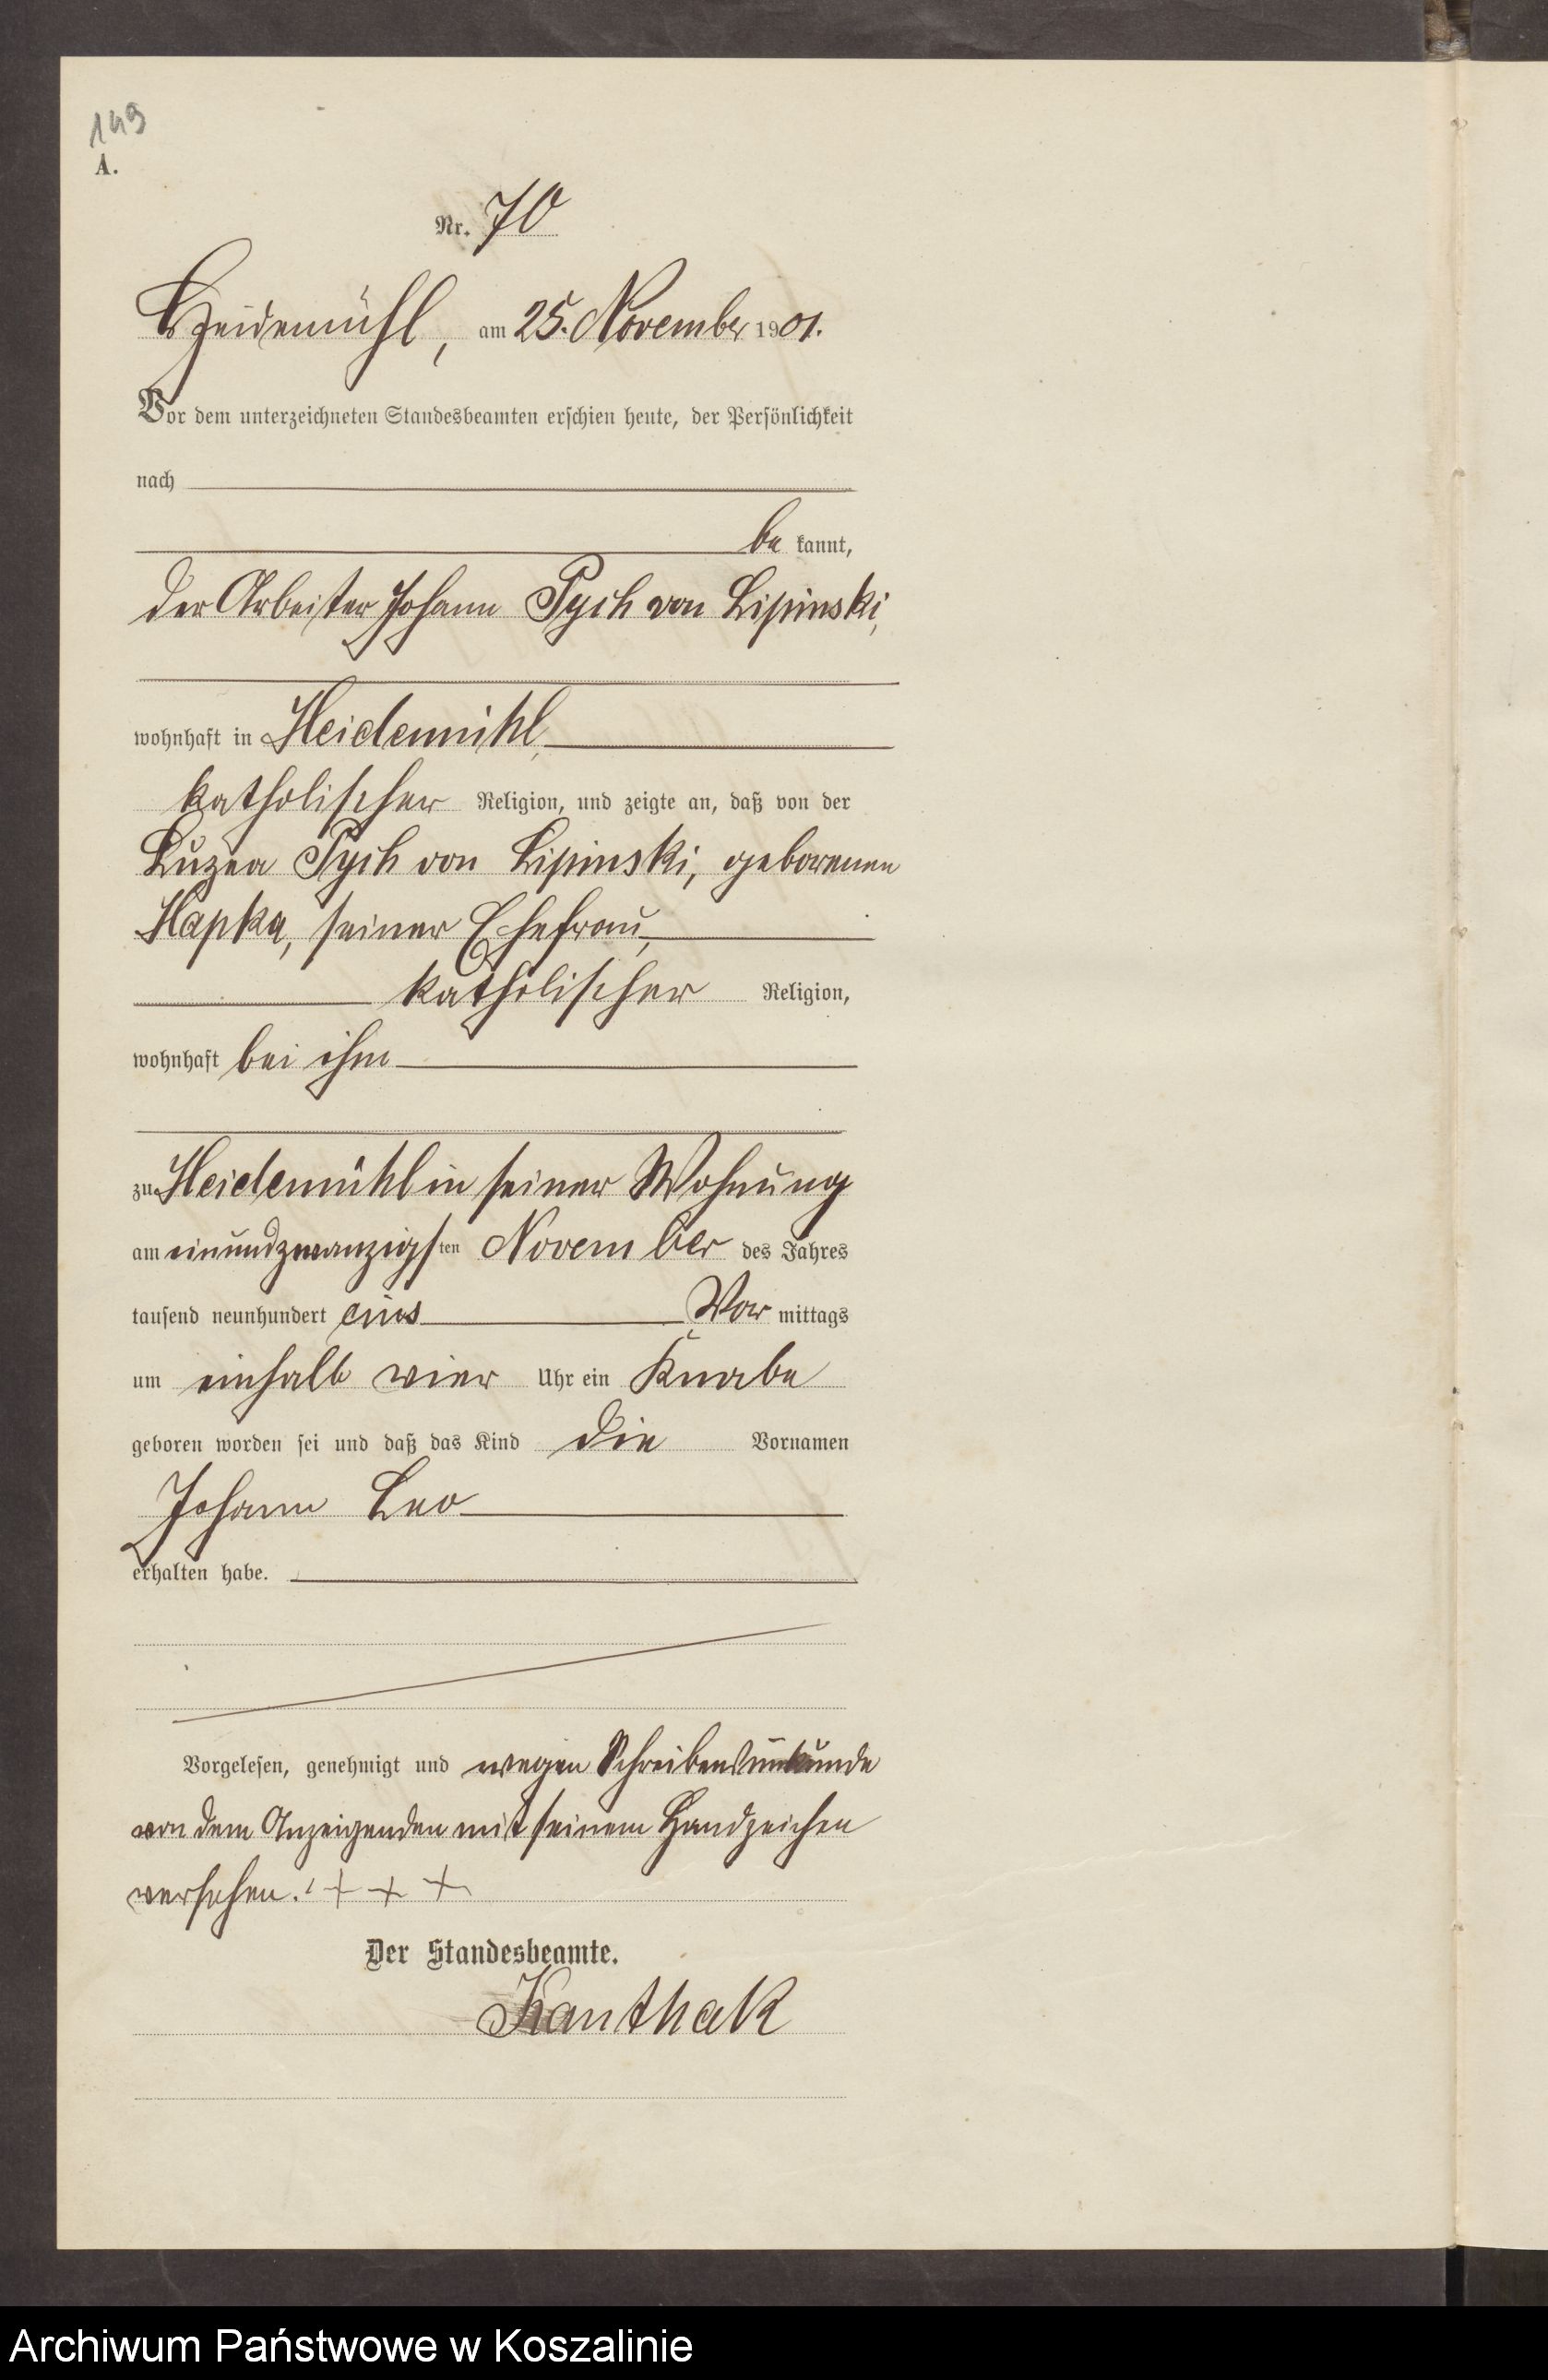 149
A.
Nr. 70
Heidemühl, am 25. November 1901.
Vor dem unterzeichneten Standesbeamten erschien heute, der Persönlichkeit
nach
be kannt,
der Arbeiter Johann Pych von Lipinski,
wohnhaft in Heidemühl,
katholischer Religion, und zeigte an, daß von der
Luzea Pych von Lipinski, geborenen
Hapka, seiner Ehefrau,
katholischer Religion,
wohnhaft bei ihm
zu Heidemühl in seiner Wohnung
am einundzwanzigsten November des Jahres
tausend neunhundert eins Vor mittags
um einhalb vier Uhr ein Knabe
geboren worden sei und daß das Kind die Vornamen
Johann Leo
erhalten habe.
Vorgelesen, genehmigt und wegen Schreibensunkunde
von dem Anzeigenden mit seinem Handzeichen
versehen. + + +
Der Standesbeamte.
Kanthak
Archiwum Państwowe w Koszalinie